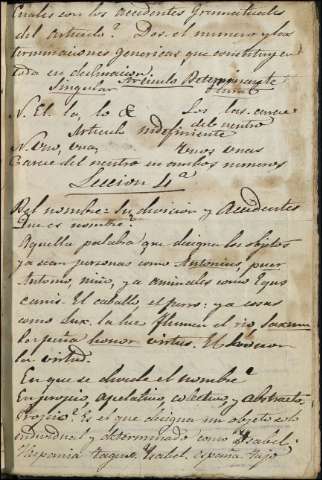 Cuales son los accidentes Gramaticales
del articulo? Dos. el numero y las
terminaciones genericas que constituyen
toda su declinacion.
Articulo Determinante
Singular Plural
N. El. la, lo & Los las. carece
del neutro
Articulo indefiniente
N. Uno, una, Unos unas
Carece del neutro en ambos numeros
Leccion 4ª
Del nombre: Su division y Accidentes
Que es nombre?
Aquella palabra que designa los objetos
ya sean personas como Antonius, puer
Antonio, niño, ya animales como Equs
canis. El caballo el perro: ya cosas
como Lux. la luz Flumen el rio Saxum
la peña honor virtus. El honor
la virtud.
En que se divide el nombre?
En propio, Apelativo, colectivo y abstracto
Propio? Es el que designa un objeto solo
individual y determinado como Isabel.
Hispania Tagus. Ysabel. españa Tajo